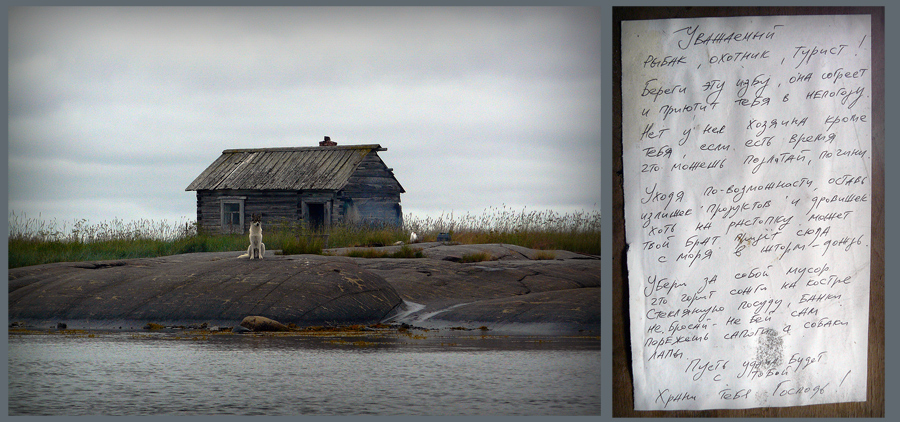 Уважаемый
рыбак, охотник, турист!
Береги эту избу, она согреет
и приютит тебя в непогоду.
Нет у нее хозяина кроме
тебя, если есть время
что можешь подлатай, почини.
Уходя по-возможности, оставь
излишек продуктов и дровишек
хоть на растопку может
твой брат придёт сюда
с моря в шторм-дождь.
Убери за собой мусор
что горит сожги на костре
стеклянную посуду, банки
не бросай - не бей сам
порежешь сапоги а собаки
лапы.
Пусть удача будет
с тобой
Храни тебя Господь!